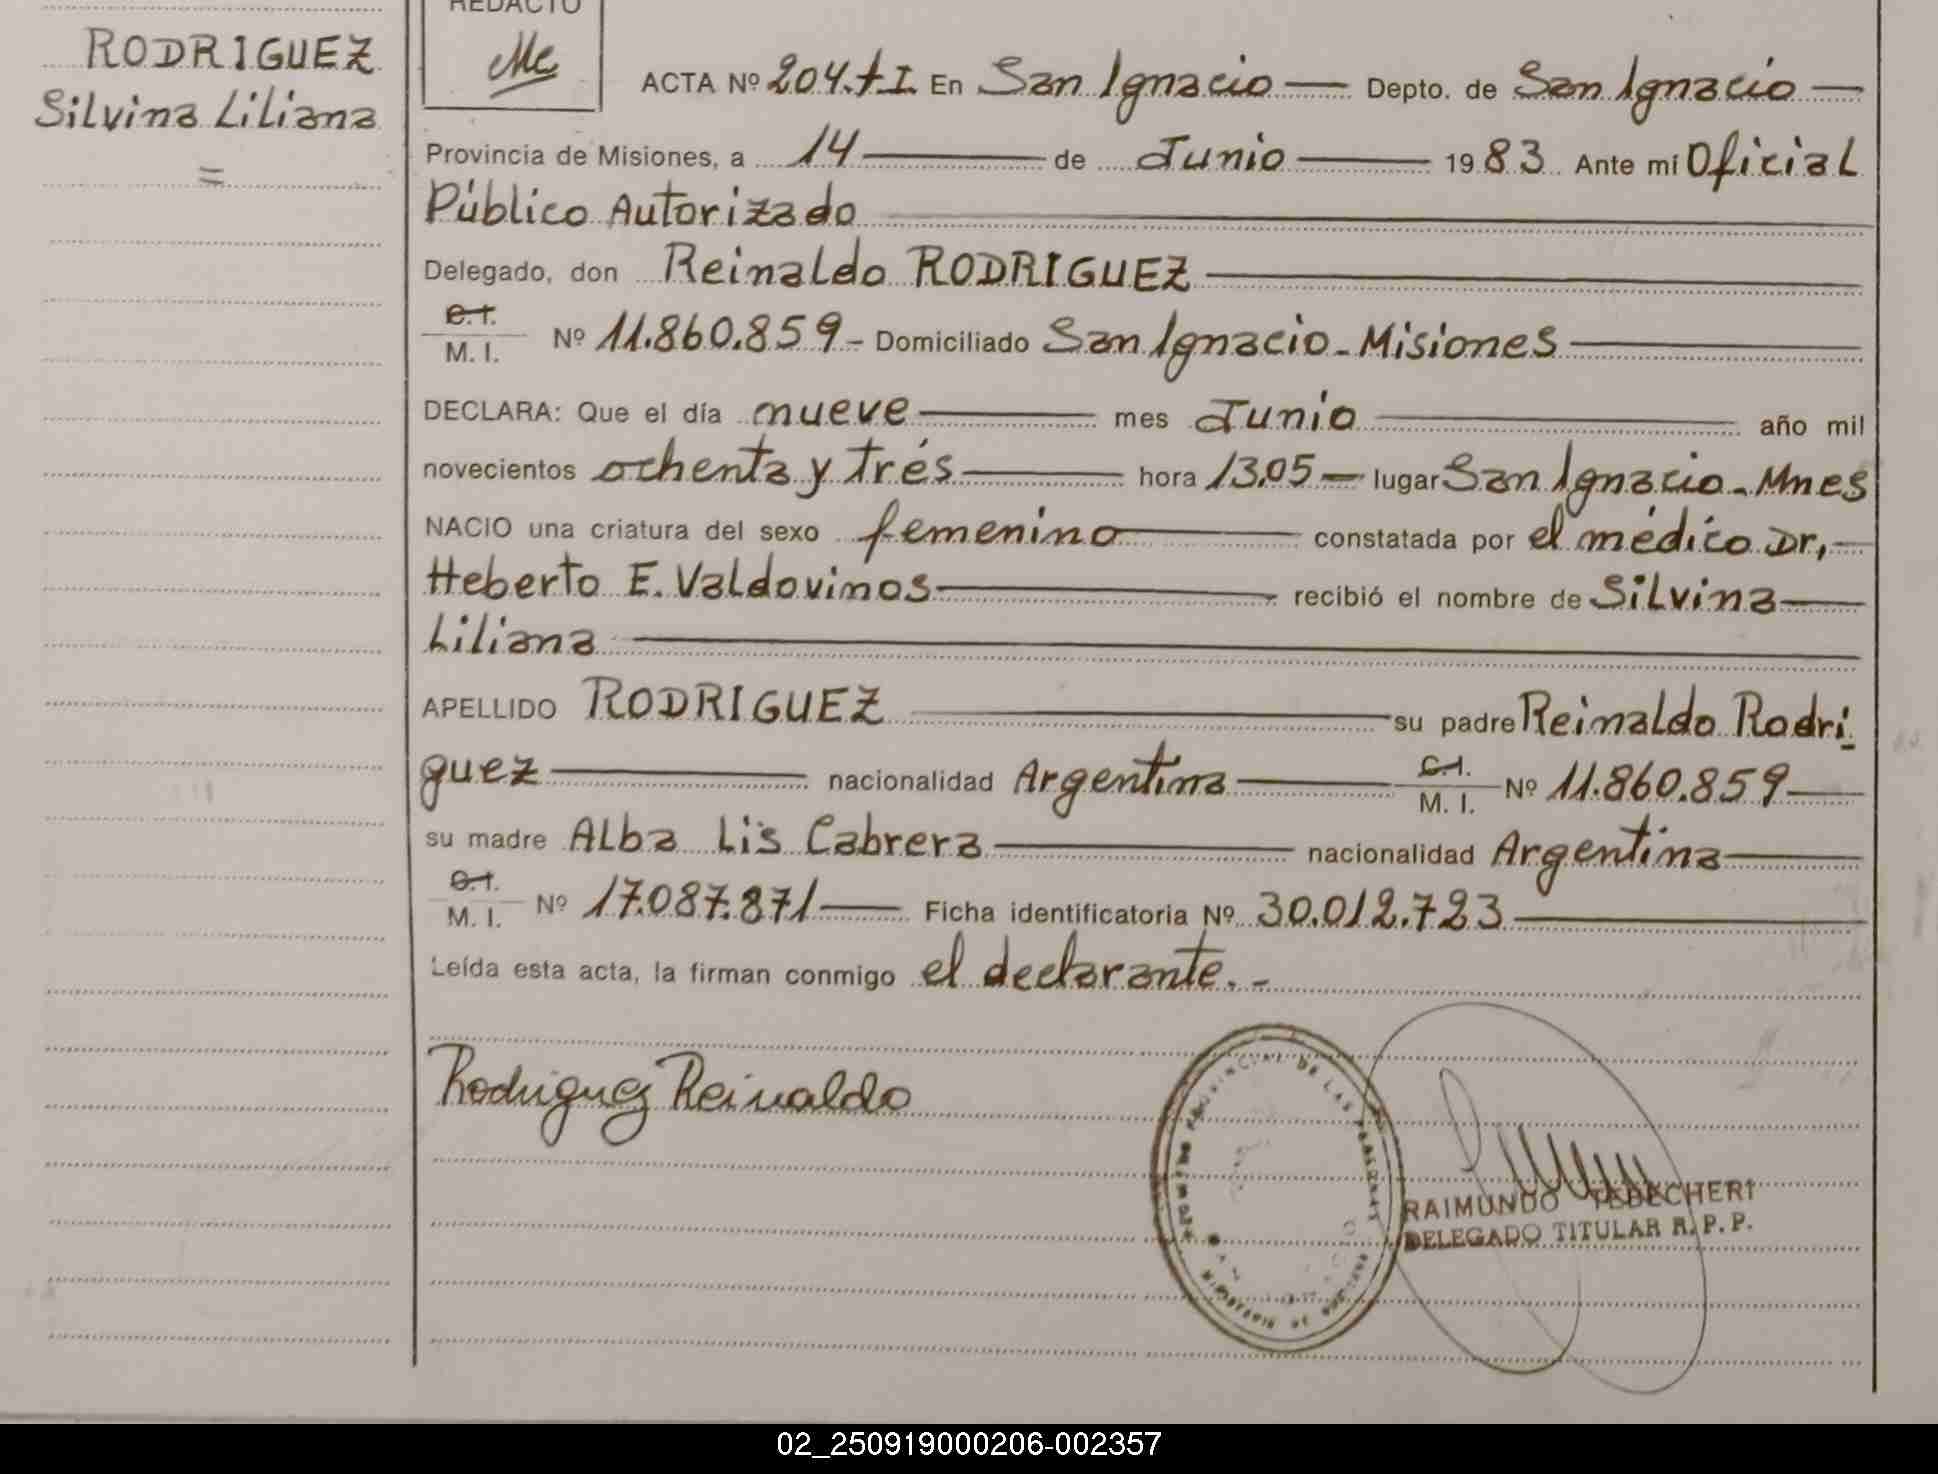 REDACTO
RODRIGUEZ
Silvina Liliana
=
Mc
ACTA Nº 204.tI. En San Ignacio — Depto. de San Ignacio —
Provincia de Misiones, a 14 — de Junio — 1983. Ante mí Oficial
Público Autorizado
Delegado, don Reinaldo RODRIGUEZ
C.I.
M. I. Nº 11.860.859 - Domiciliado San Ignacio - Misiones
DECLARA: Que el día nueve — mes Junio — año mil
novecientos ochenta y trés — hora 13,05 — lugar San Ignacio - Mnes
NACIO una criatura del sexo femenino — constatada por el médico Dr, —
Heberto E. Valdovinos — recibió el nombre de Silvina —
Liliana
APELLIDO RODRIGUEZ — su padre Reinaldo Rodri
guez — nacionalidad Argentina — C.I.
M. I. Nº 11.860.859 —
su madre Alba Lis Cabrera — nacionalidad Argentina —
C.I.
M. I. Nº 17.087.871 — Ficha identificatoria Nº 30.012.723
Leída esta acta, la firman conmigo el declarante. -
Rodriguez Reinaldo
PROVINCIAL DE LAS PERSONAS
RAIMUNDO TEDECHERI
DELEGADO TITULAR R. P. P.
02_250919000206-002357